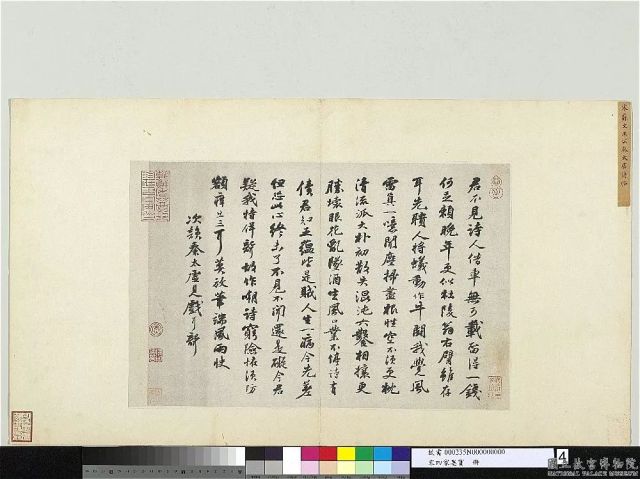 君不見詩人借車無可載留得一錢
何足賴晚年更似杜陵翁右臂雖存
耳先聵人將蟻動作牛鬪我覺風
雷真一噫聞塵掃盡根性空不須更枕
清流派大朴初散失混沌六鑿相攘更
勝壞眼花亂墜酒生風口業不停詩有
債君知五蘊皆是賊人生一病今先差
但恐此心終未了不見不聞還是礙今君
疑我特佯聾故作嘲詩窮險怪須防
額痒出三耳莫放筆端風雨快
次韻秦太虛見戲耳聾
故書 000235N000000000
宋四家真蹟 冊
4
國立故宮博物院
NATIONAL PALACE MUSEUM